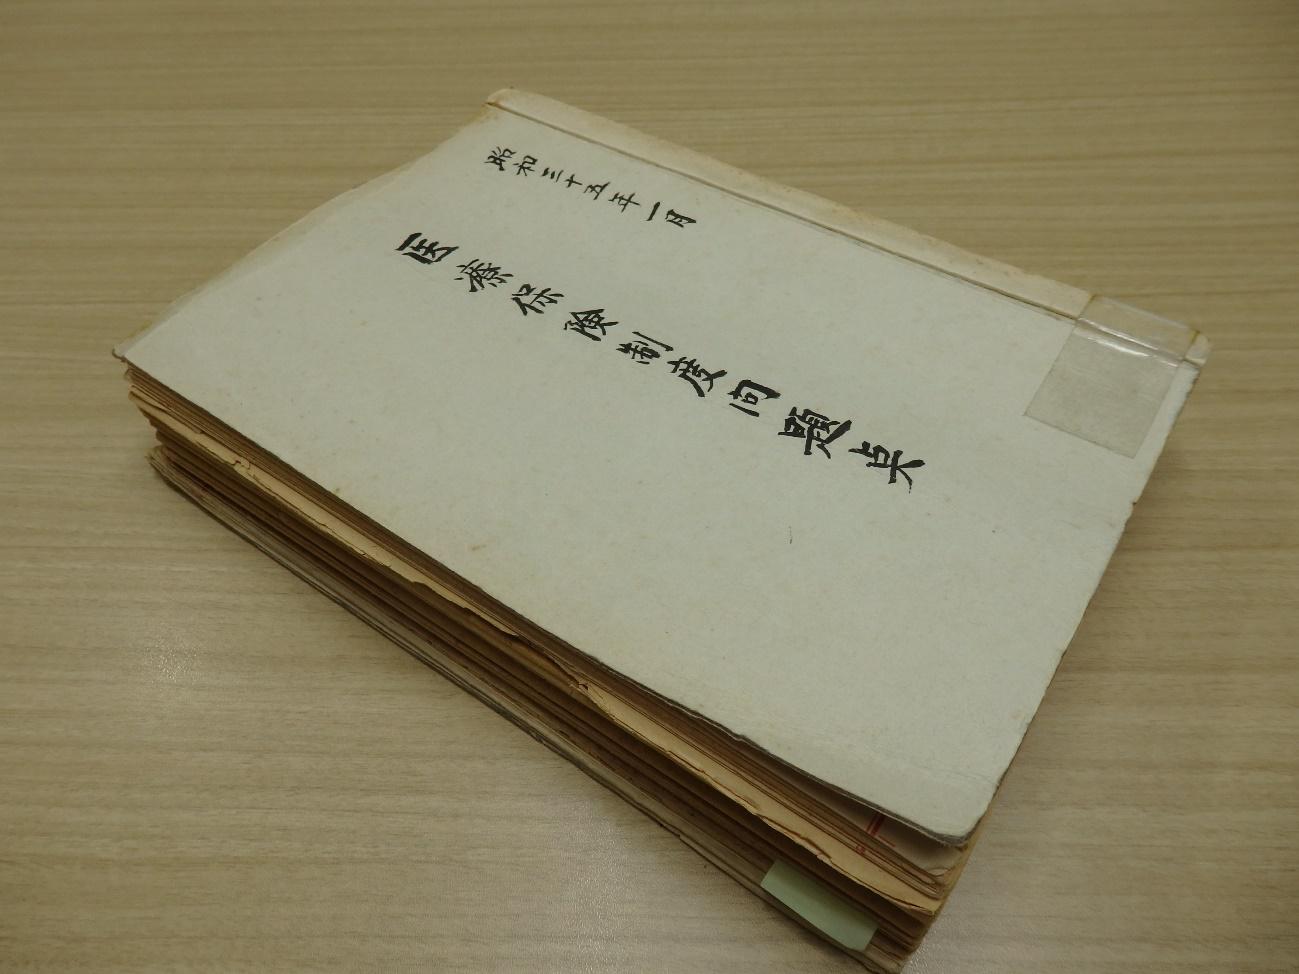 昭和三十五年一月
医療保険制度問題点